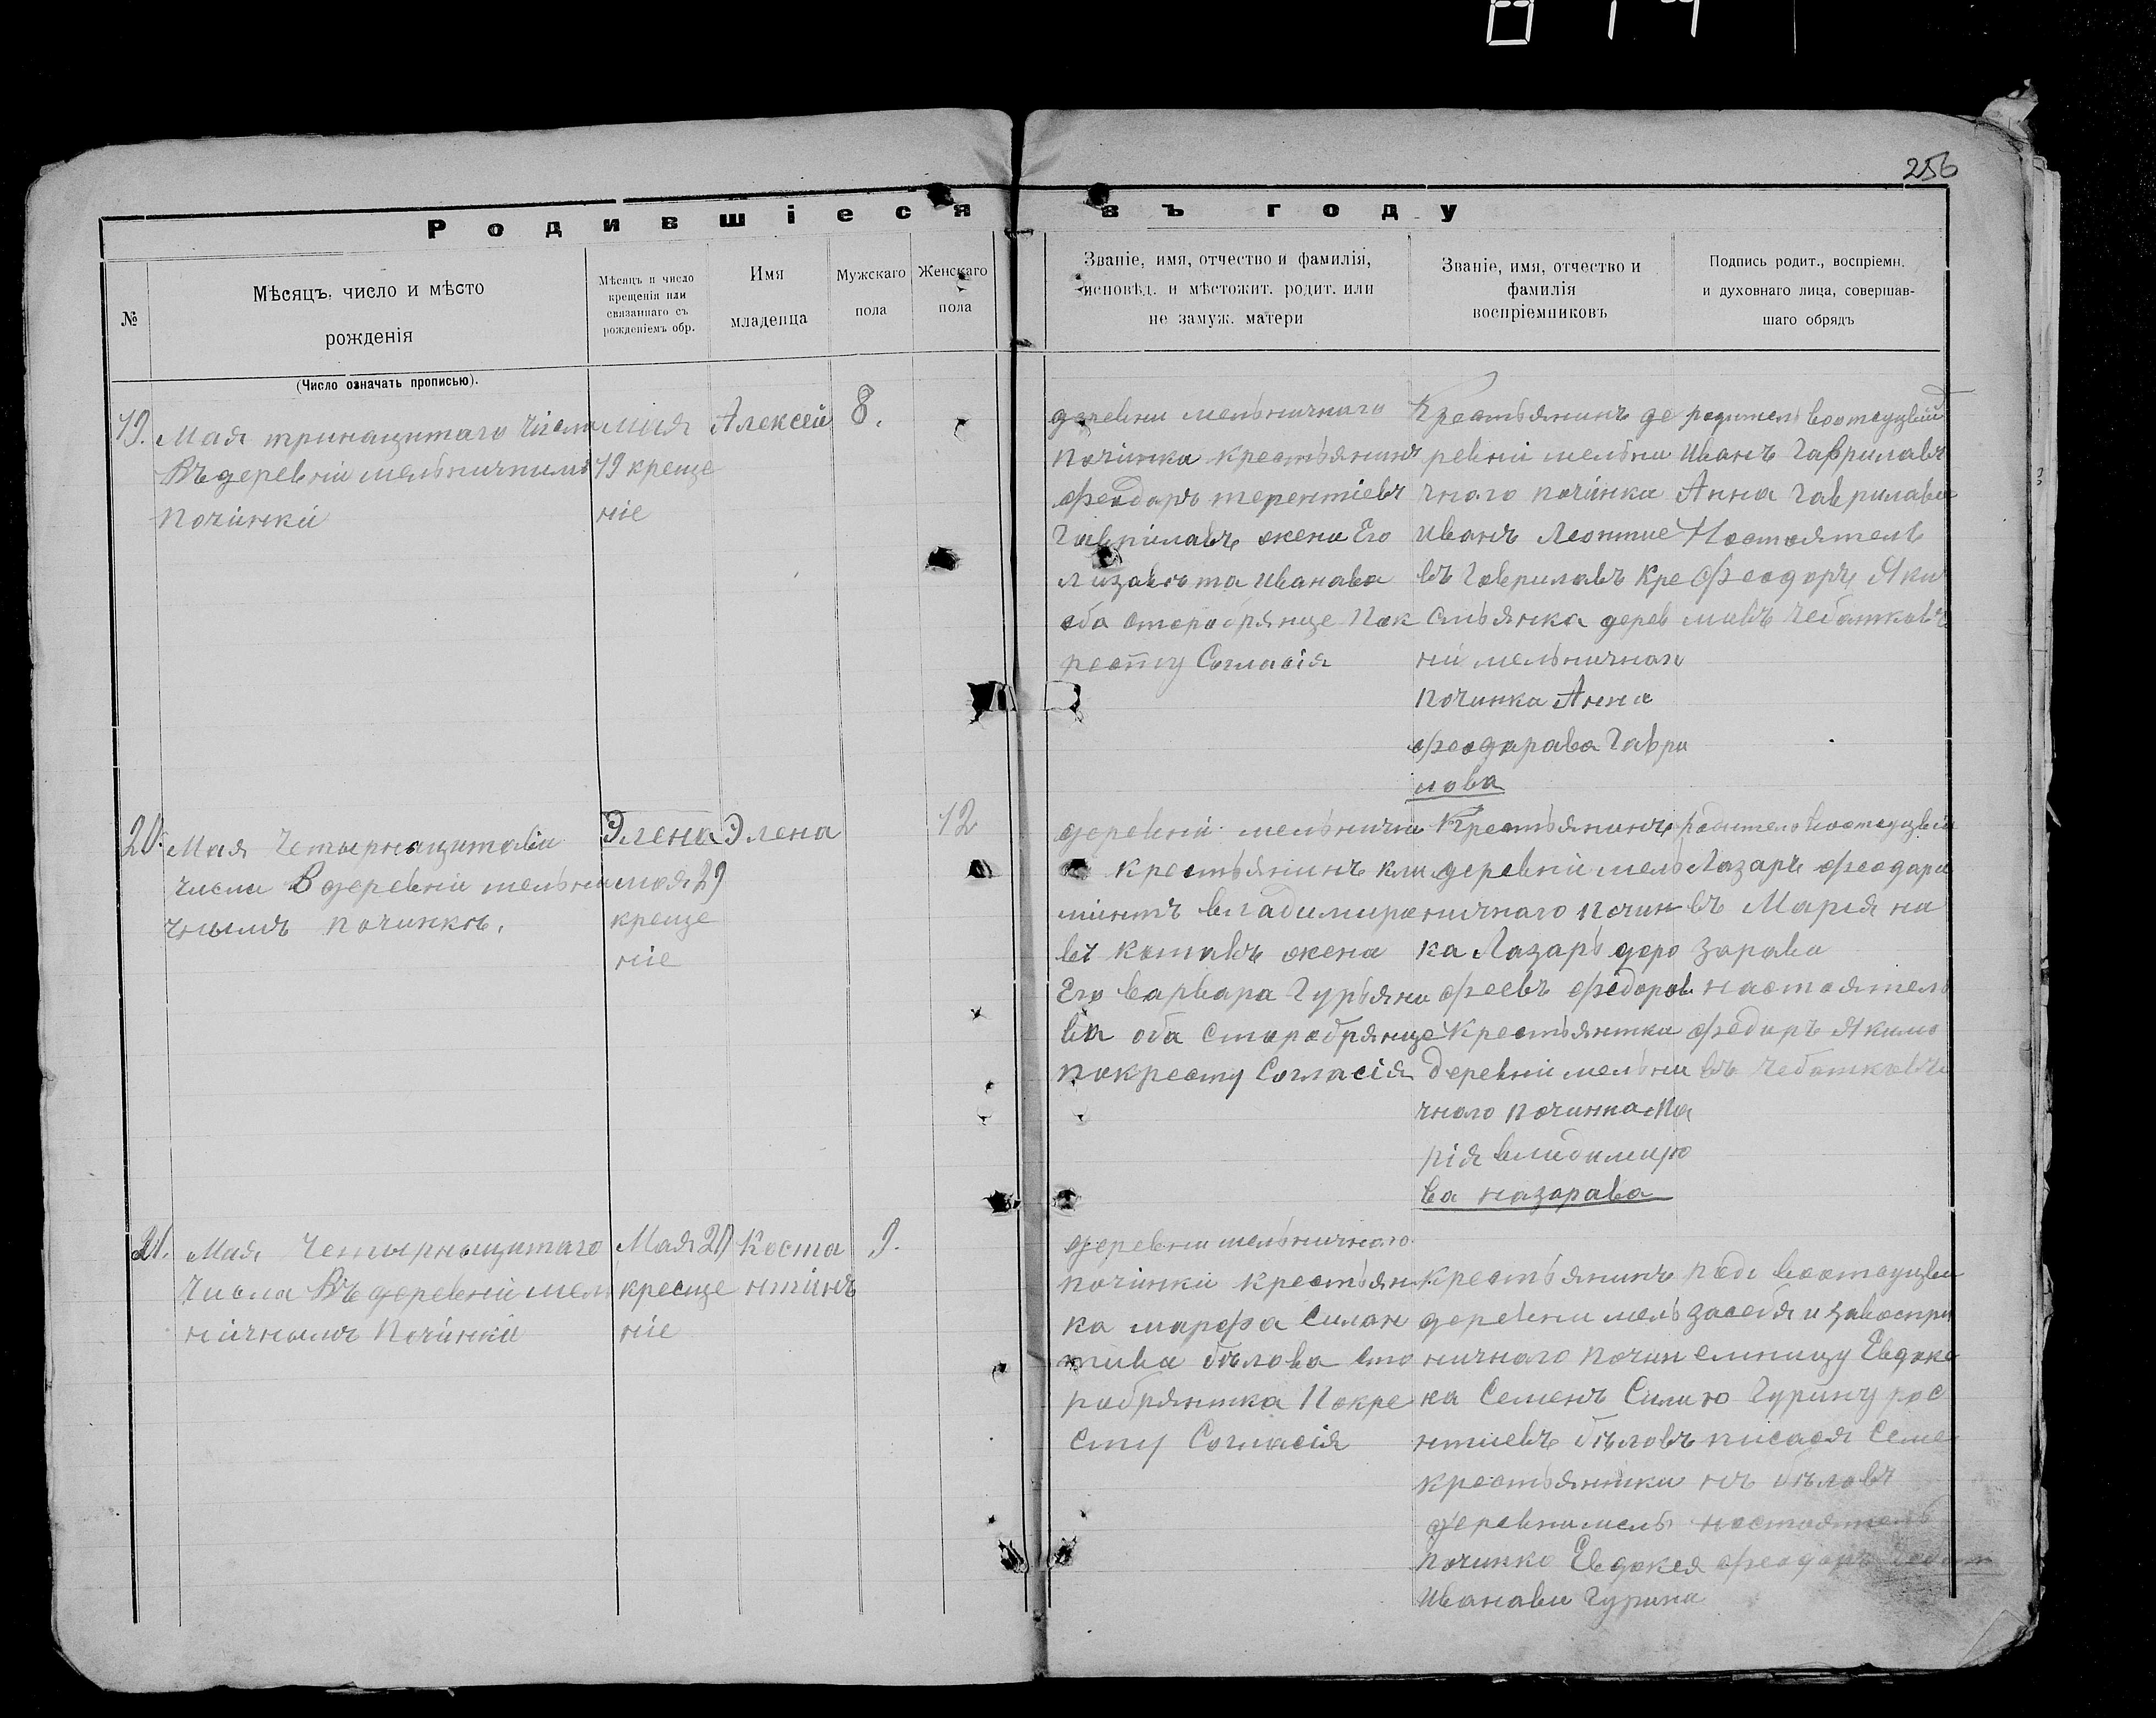 256
Родившіеся въ году
№
Мѣсяцъ, число и мѣсто
рожденія
(Число означать прописью).
Мѣсяцъ и число
крещенія или
связаннаго съ
рожденіемъ обр.
Имя
младенца
Мужскаго
пола
Женскаго
пола
Званіе, имя, отчество и фамилія,
исповѣд. и мѣстожит. родит. или
не замуж. матери
Званіе, имя, отчество и
фамилія
воспріемниковъ
Подпись родит., воспріемн.
и духовнаго лица, совершав-
шаго обрядъ
19.
Мая тринацитаго число
Въ деревніи мельничнимъ
починки
мия
19 креще
ніе
Алексей
8.
деревни мельничнаго
починка крестьянинъ
феодаръ терентіевъ
Гаврилавъ жена Его
лизавѣта иванава
оба старобрянце Пок
ресту Согласія
Крестьянинъ де
ревніи мельни
чнаго починка
иванъ Леонтие
въ Гаврилавъ Кре
стьянка дерев
ни мельничнаго
починка Анна
феодарава Гаври
лова
родитель
иванъ Гаврилавъ
Анна Гаврилава
Настоятель
феодоръ Яки
мивъ Чеботковъ
20.
Мая
числа В деревніи мельни
чнымъ починкѣ.
Элена
мая 29
креще
ніе
Элена
12
деревніи мельнични
крестьянинъ кли
минтъ владимиро
вѣ Котавъ жена
Его варвара Гурьяни
ва оба старобрянце
покресту Согласія
Крестьянинъ
деревніи мель
ничнаго почин
ка Лазарь доро
феевъ федоров
Крестьянка
деревніи мельни
чнаго починка Ма
рія владимиро
ва назарава
родитель
Лазаръ феодаро
въ Марія на
зарава
настоятель
федоръ Якимо
въ Чеботковъ
21.
Мая четырнацитаго
числа Въ деревніи мель
ничнымъ починки
Мая 29
креще
ніе
Коста
нтинъ
9.
деревни мельничнаго
починки крестьян
ка марфа Силан
тива бѣлова ста
робрянка Покре
сту Согласія
крестьянинъ
деревни мель
ничнаго почин
ка Семенъ Сила
нтиевъ бѣловъ
крестьянки
деревни мель
починко Евдокея
иванави Гурина
за себя и завоспри
емницу Евдоке
ю Гурину рос
писася Семе
нъ бѣловъ
настоятель
феодоръ